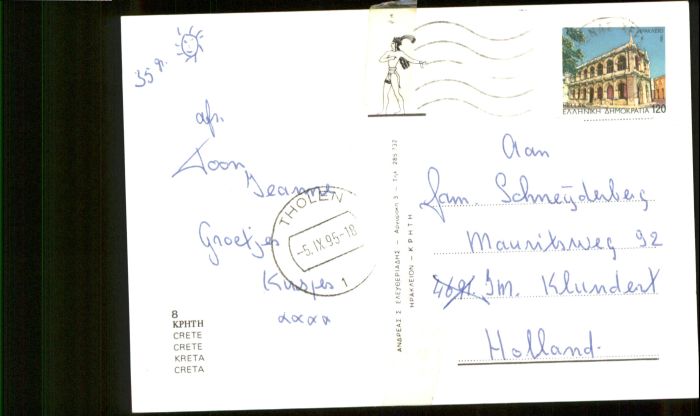 35 gr.
afz.
Toon
Jeanne
Groetjes
Kusjes
xxxx
THOLEN
-5.IX 95-18
1
8
ΚΡΗΤΗ
CRETE
CRETE
KRETA
CRETA
ΑΝΔΡΕΑΣ Σ ΕΛΕΥΘΕΡΙΑΔΗΣ –
ΗΡΑΚΛΕΙΟΝ - ΚΡΗΤΗ
ΗΡΑΚΛΕΙΟ
ΕΛΛΗΝΙΚΗ ΔΗΜΟΚΡΑΤΙΑ 120
Aan
fam. Schneijderberg
Mauritsweg 92
Klundert
Holland.